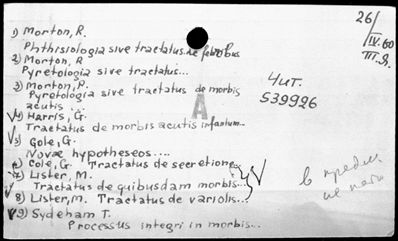 1) Morton, R.
Phthisiologia sive tractatus de febribus
2) Morton, R
Pyretologia sive tractatus...
3) Morton, R.
Pyretologia sive tractatus de morbis
acutis ...
4) Harris, G.
Tractatus de morbis acutis infantum...
5) Cole, G.
Novae hypotheseos....
6) Cole, G. Tractatus de secretione
7) Lister, M.
Tractatus de quibusdam morbis...
8) Lister, M. Tractatus de variolis...
9) Sydeham T.
Processus integri in morbis...
A
Чит.
539926
26/
IV.60
в предм.